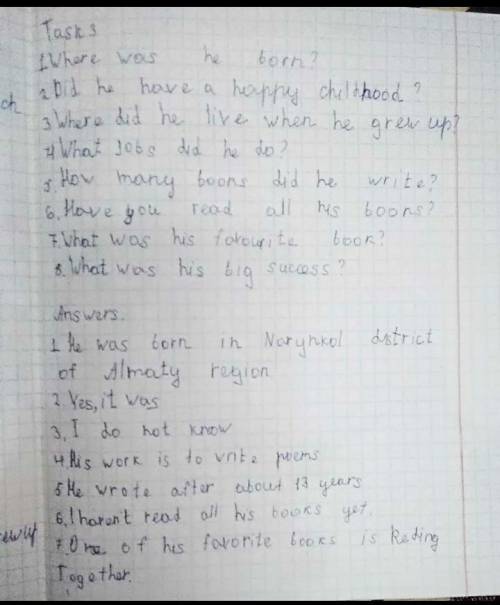 Task 3
1. Where was he born?
ch
2. Did he have a happy childhood?
3 Where did he live when he grew up?
4 What Jobs did he do?
5. How many boons did he write?
6. Have you read all his boons?
7. What was his favourite book?
8. What was his big success?
Answers.
1. He was born in Narynkol district
of Almaty region
2. Yes, it was
3, I do not know
4. His work is to write poems
5. He wrote after about 13 years
6, I haven't read all his books yet.
7. One of his favorite books is Reding
Together.